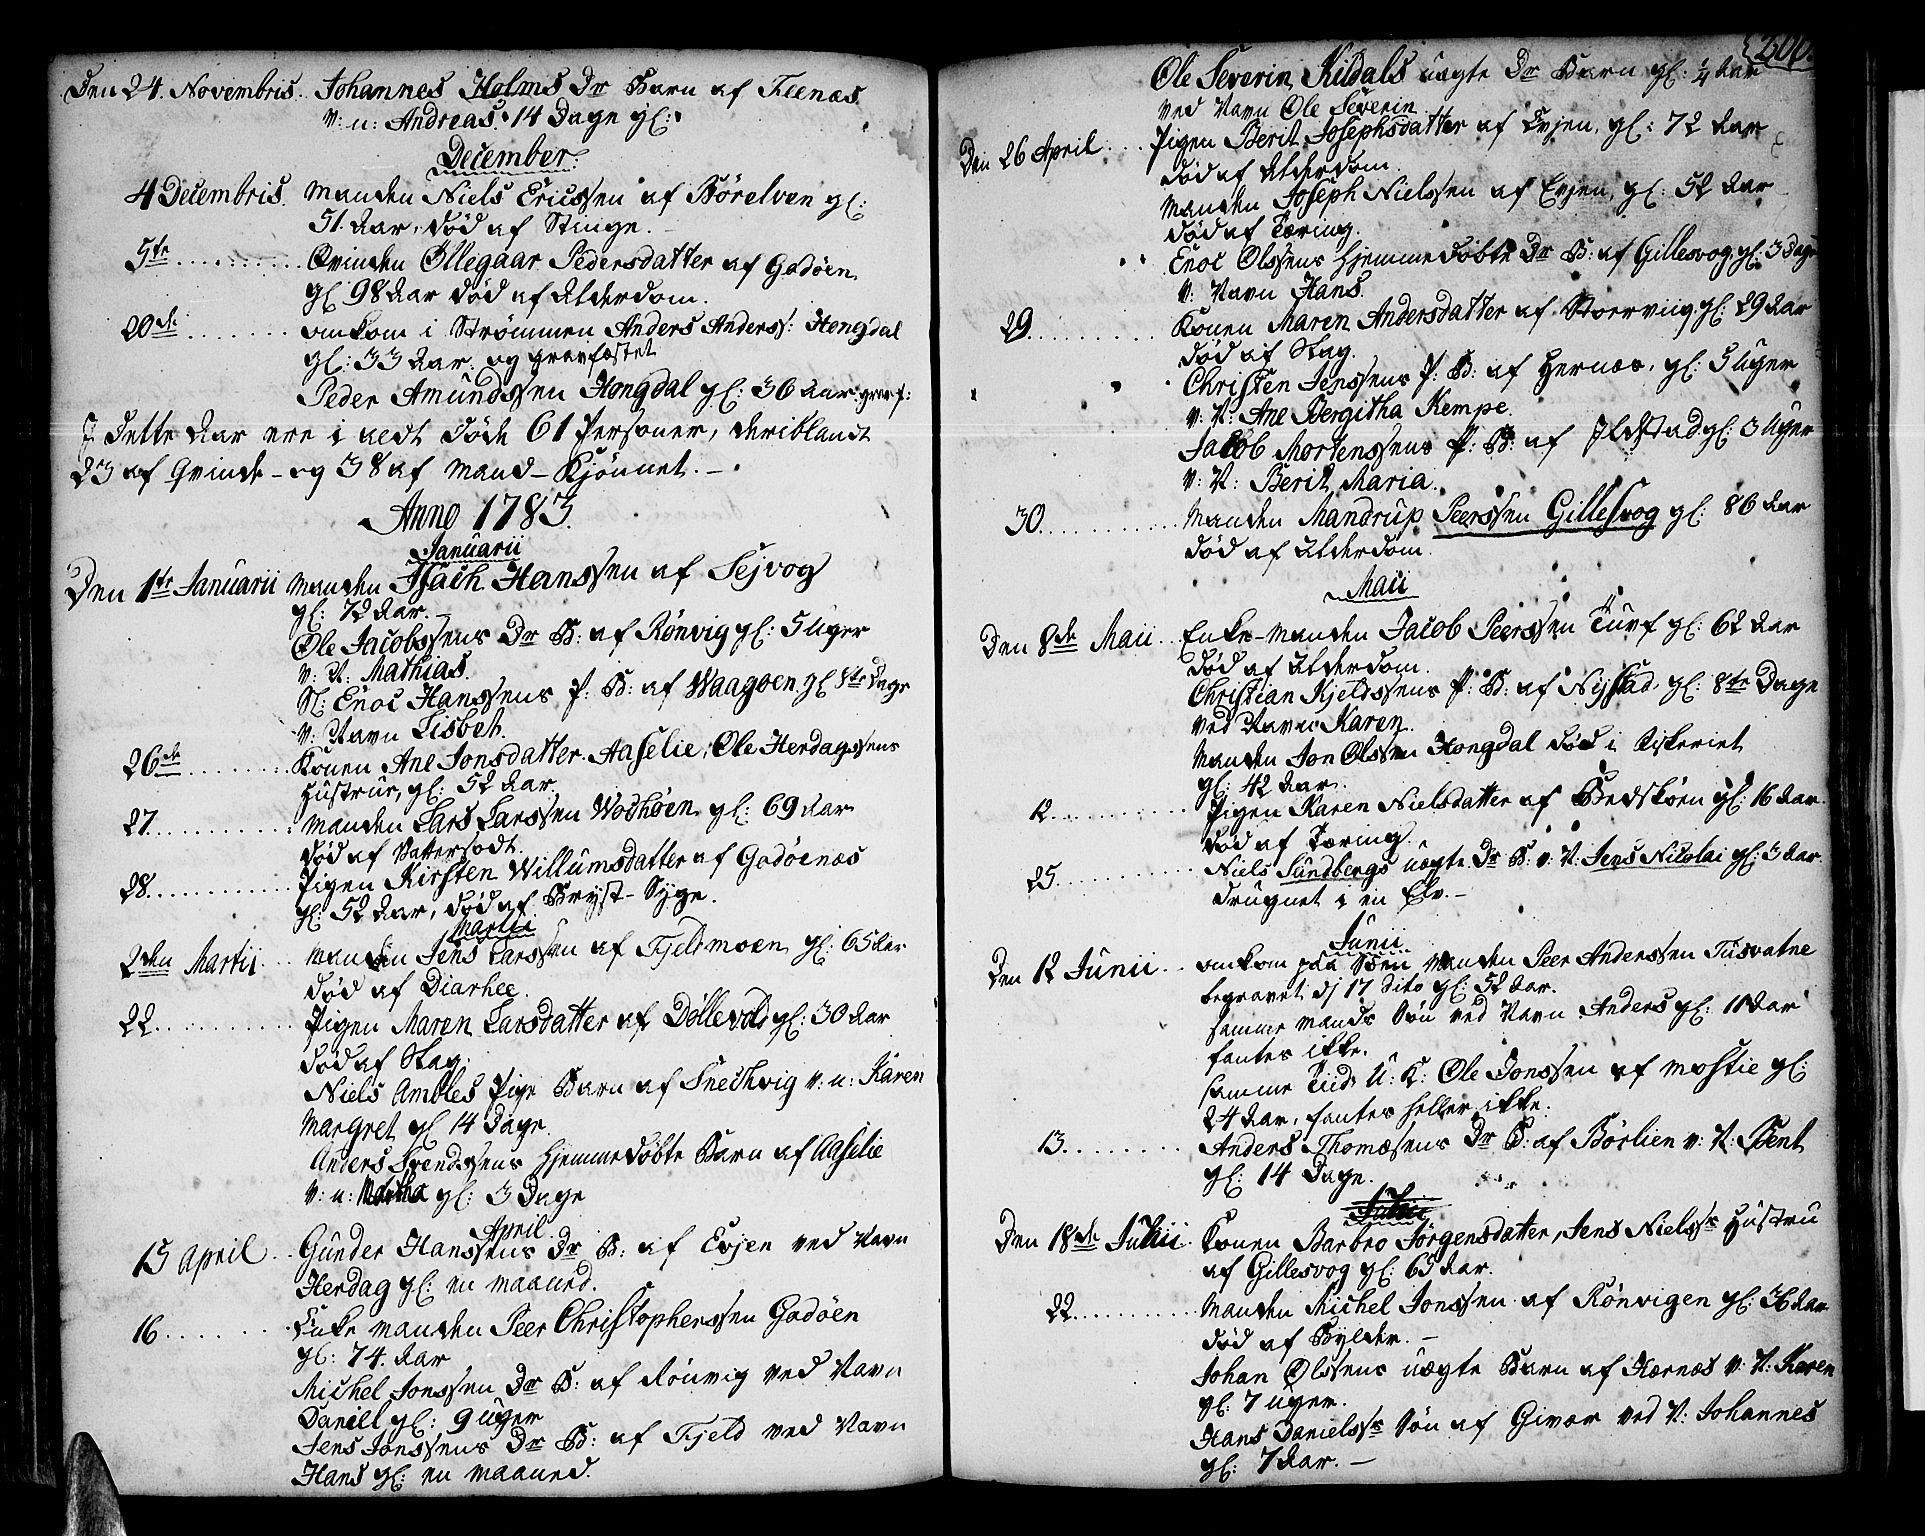 Den 24. Novembris. Johannes Holms Dr Barn af Fenæs.
v: n: Andreas. 14 Dage gl:
December.
4 Decembris. Manden Niels Ericssen af Börelven gl:
51. Aar, död af Stinge.
5te Qvinden Öllegaar Pedersdatter af Godöen
gl 98 Aar död af Alderdom.
20de omkom i Strömmen Anders Anderss: Hongdal
gl: 33 Aar. og gravfæstet
Peder Amundssen Hongdal gl: 36 Aar. gravf:
I dette Aar ere i aldt döde 61 Personer, deriblandt
23 af Qvinde- og 38 af Mand-Kjönnet.
Anno 1783.
Januarii
Den 1te Januarii Manden Isach Hanssen af Sejvog
gl: 72 Aar.
Ole Jacobssens Dr B: af Rönvig gl: 5 Uger
v: N: Mathias.
Sl: Enoc Hanssens P: B: af Waagöen gl 8te Dage
v: Navn Lisbeth.
26de Konen Ane Jonsdatter Aaselie, Ole Herdagssens
Hustrue, gl: 52 Aar.
27 Manden Lars Larssen Wodhöen gl: 69 Aar
död af Vattersodt.
28 Pigen Kirsten Willumsdatter af Godöenæs
gl: 52 Aar, död af Bryst-Syge.
Martii
2den Martii Manden Jens Larssen af Fjeldmoen gl: 65 Aar
död af Diarhee.
22 Pigen Maren Larsdatter af Döllevold gl: 30 Aar
död af Slag.
Niels Ambles Pige Barn af Snechvig v: n: Karen
Margret gl 14 Dage.
Anders Svendssens hjemmedöbte Barn af Aaselie
v: n: Martha gl: 3 Dage
April.
15 April Gunder Hanssens Dr B: af Evjen ved Navn
Herdag gl: en Maaned.
16 Enke Manden Peer Christophersen Godöen
gl: 74. Aar
Michel Jonssen Dr B: af Rönvig ved Navn
Daniel gl: 9 Uger
Jens Jonssens Dr B: af Fjeld ved Navn
Hans gl: en Maaned.
200.
Ole Severin Kildals uægte Dr Barn gl: 1/4 Aar
ved Navn Ole Severin
Den 26 April Pigen Berit Josephsdatter af Evjen, gl: 72 Aar
död af Alderdom.
Manden Joseph Nielssen af Evjen, gl: 52 Aar
död af Tæring.
Enoc Olssens hjemmedöbte Dr B: af Gillesvog gl: 3 Dage
v: Navn Hans.
29 Konen Maren Andersdatter af Storviig gl: 29 Aar
död af Slag.
Christen Jenssens P: B: af Hernæs, gl: 5 Uger
v: N: Ane Bergitha Kempe.
Jacob Mortenssens P: B: af Ildstad gl: 3 Uger
v: N: Berit Maria.
30 Manden Mandrup Peerssen Gillesvog gl: 86 Aar
död af Alderdom.
Maii
Den 8de Maii Enke-Manden Jacob Peerssen Turf gl: 62 Aar
död af Alderdom.
Christian Kjeldssens P: B: af Nystad, gl: 8te Dage
ved Navn Karen.
Manden Jon Olssen Hongdal död i Fiskeriet
gl: 42 Aar.
12 Pigen Karen Nielsdatter af Bedskören gl: 16 Aar.
död af Tæring.
25 Niels Sundbergs uægte Dr B: v: N: Jens Nicolai gl: 3 Aar.
drugnet i en Elv.
Junii
Den 12 Junii omkom paa Söen Manden Peer Anderssen Tusvatne
begravet dj 17 dito gl: 52 Aar.
samme Mands Sön ved Navn Anders gl: 11 Aar
fantes ikke.
samme Tiid U: K: Ole Jonssen af Mostie gl:
24 Aar, fantes heller ikke.
13 Anders Thomæsens Dr B: af Börlien v: N: Bent
gl: 14 Dage.
Julii
Den 18de Julii Konen Barbro Jörgensdatter, Jens Nielssr Hustru
af Gillesvog gl: 65 Aar.
22 Manden Michel Jonssen af Rönvigen gl: 36 Aar
död af Bylder.
Johan Ölssens uægte Barn af Hærnæs v: N: Karen
gl: 7 Uger.
Hans Danielssr Sön af Givær ved N: Johannes
gl: 7 Aar.